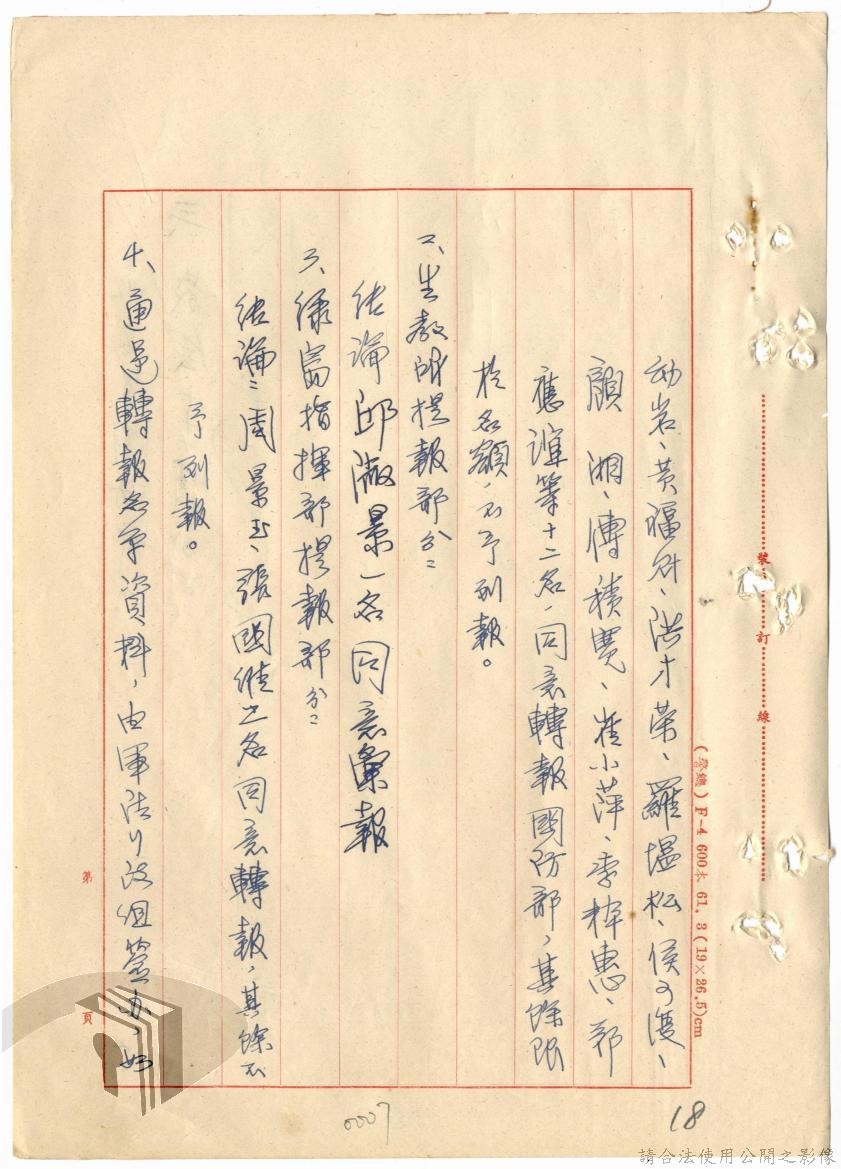 幼岩、黃福財、洪才榮、羅堪松、侯可漢、
顏湘、傅積寬、崔小萍、李梓惠、郭
應滙等十二名，同意轉報國防部，其餘限
於名額，不予列報。
二、生教所提報部分：
結論邱澂景一名同意彙報
三、綠島指揮部提報部分：
結論：周景玉、張國維二名同意轉報，其餘不
予列報。
十、通過轉報名單資料，由軍法行政組簽辦，如
裝訂線
(警總) F-4 600本 61. 3 (19×26.5)cm
第 頁
18
0007
請合法使用公開之影像